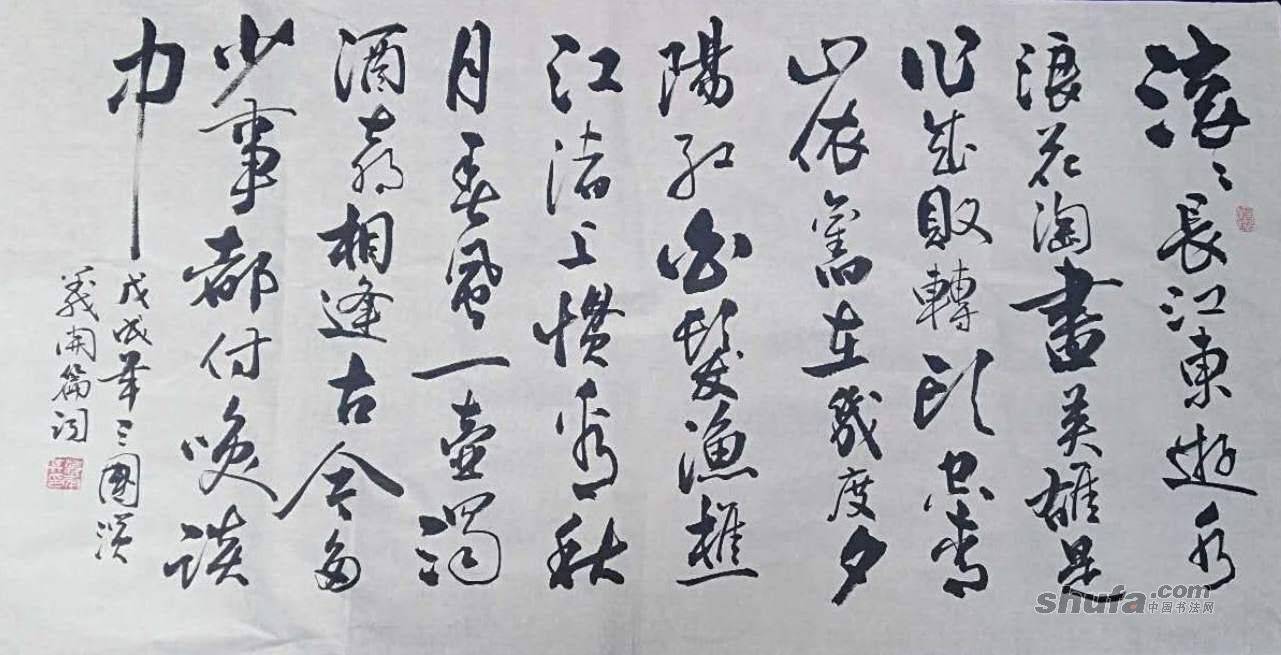 滾〻長江東逝水
浪花淘盡英雄是
非成敗轉頭空青
山依舊在幾度夕
陽紅白髮漁樵
江渚上慣看秋
月春風一壺濁
酒喜相逢古今多
少事都付咲談
中
戊戌年三國演
義開篇词
shufa.com
中国书法网